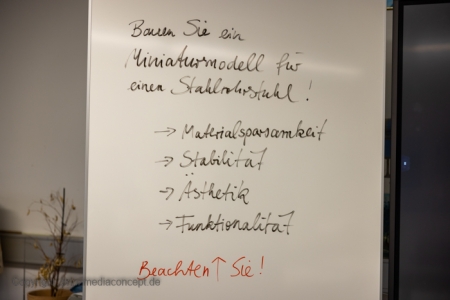 Bauen Sie ein
Miniaturmodell für
einen Stahlrohrstuhl!
→ Materialsparsamkeit
→ Stabilität
→ Ästhetik
→ Funktionalität
Beachten ↑ Sie!
mediaconcept.de